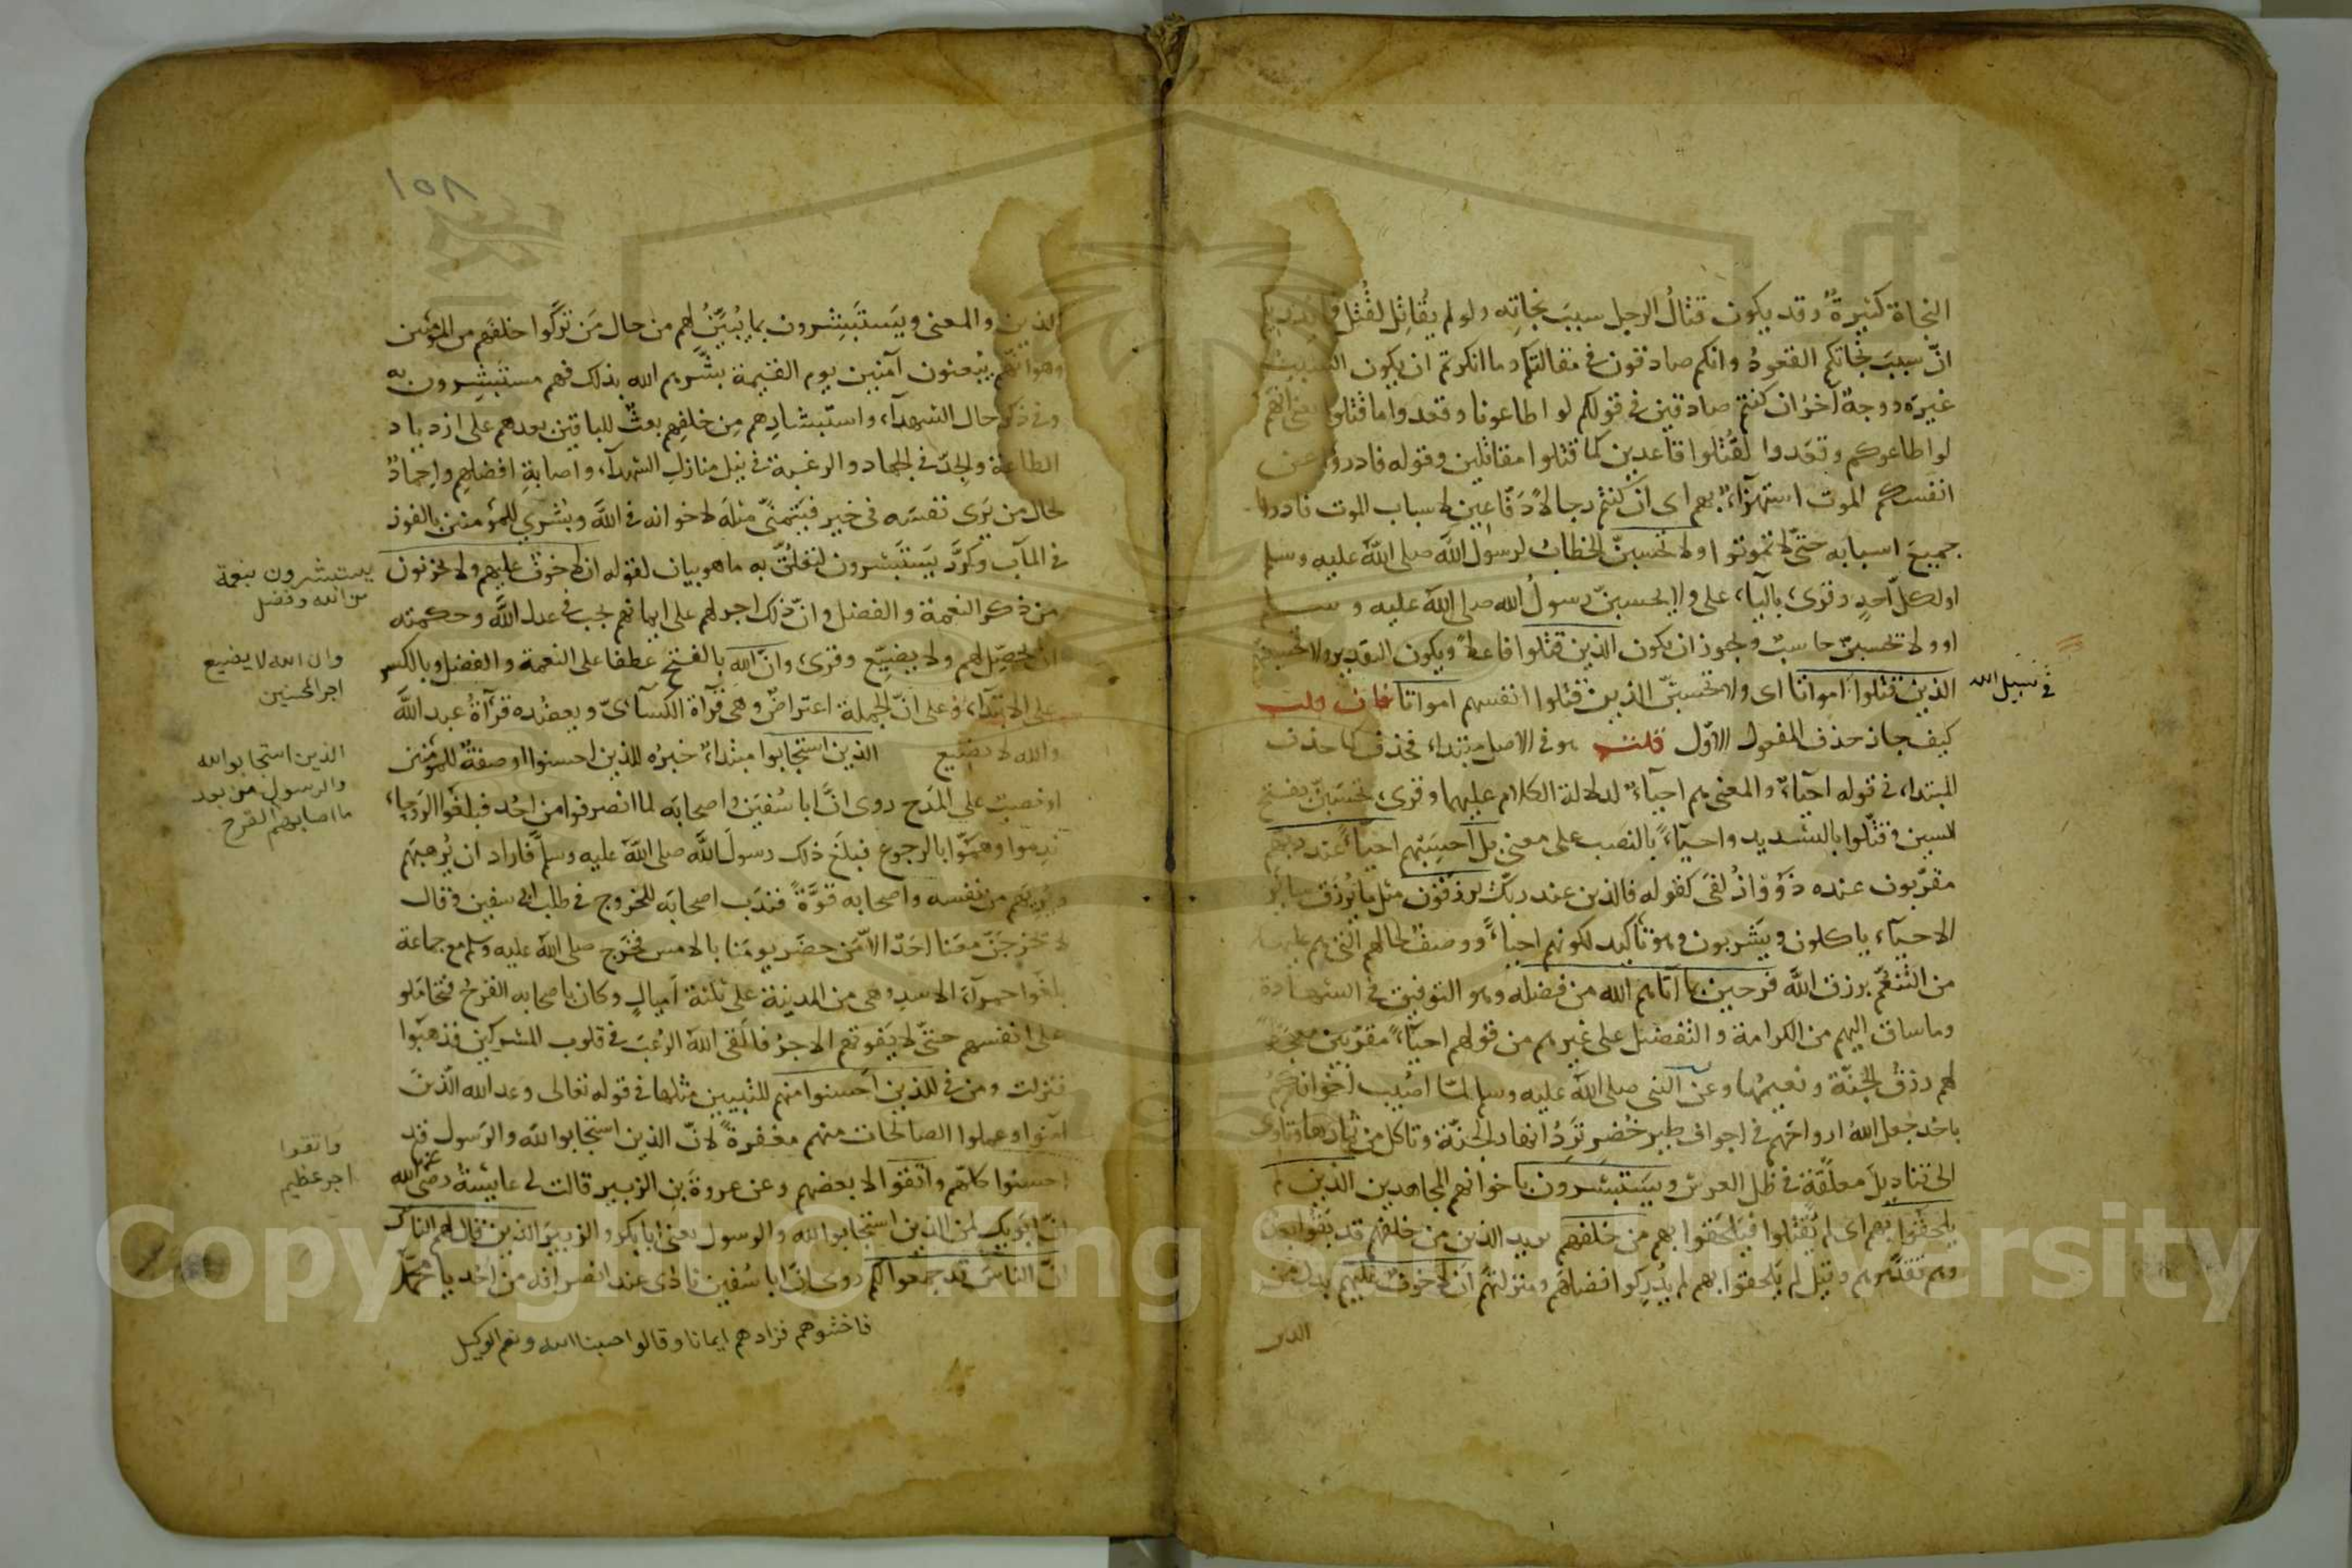 النجاة كثيرةٌ وقد يكون قتالُ الرجل سببَ نجاتِه ولو لم يُقاتِل لقُتل فما يدريكم
انّ سببَ نجاتكم القعودُ وانكم صادقون في مقالتكم وما انكرتم ان يكون السبب
غيرَه ووجهٌ آخرُ ان كنتم صادقين في قولكم لو اطاعونا وقعدوا ما قتلوا يعني انهم
لو اطاعوكم وقعدوا لقُتلوا قاعدين كما قتلوا مقاتلين وقوله فادرؤا عن
انفسكم الموت استهزاءٌ بهم اى ان كنتم رجالاً دَفّاعِين لاسباب الموت فادرؤا
جميعَ اسبابه حتّى لا تموتوا ولا تحسبنّ الخطابُ لرسول الله صلى الله عليه وسلم
او لكلّ احدٍ وقرئ بالياء على ولا يحسبنّ رسولُ الله صلى الله عليه وسلم
او ولا يحسبنّ حاسبٌ ويجوز ان يكون الذين قتلوا فاعلاً ويكون التقدير ولا يحسبنهم
الذين قتلوا امواتا اى ولا تحسبنّ الذين قتلوا انفسهم امواتا فان قلت
في سبيل الله
كيف جاز حذف المفعول الاوّل قلت هو في الاصل مبتداء فحذف كما حذف
المبتداء في قوله احياءٌ والمعنى هم احياءٌ لدلالة الكلام عليهما وقرئ تحسَبنّ بفتح
السين وقتّلوا بالتشديد واحياءً بالنصب على معنى بل احسِبْهم احياءً عند ربهم
مقرّبون عنده ذَوُو زُلفى كقوله فالذين عند ربّك يرزقون مثل ما يُرزق سائر
الاحياء ياكلون ويشربون وهو تاكيد لكونهم احياءً ووصف لحالهم التي هم عليها
من التنعّم برزق الله فرحين بما آتاهم الله من فضله وهو التوفيق في الشهادة
وما ساق اليهم من الكرامة والتفضيل على غيرهم من قولهم احياءً مقرّبين معجّلاً
لهم رزقُ الجنّة ونعيمُها وعن النبى صلى الله عليه وسلم لمّا اصُيب اخوانكم
باحُد جعل اللهُ ارواحَهم في اجواف طير خُضرٍ تَرِدُ انهار الجنّة وتاكل من ثمارها وتاوى
الى قناديلَ معلّقةٍ في ظل العرش ويستبشرون باخوانهم المجاهدين الذين لم
يلحقوا بهم اى لم يُقتلوا فيلحقوا بهم من خلفهم يريد الذين من خلفهم قد بقوا بعدهم
وهم تقدّموهم وقيل لم يلحقوا بهم لم يُدرِكوا افضلهم ومنزلتهم ان لا خوف عليهم بدل من
الذين
١٥٨
الذين والمعنى ويَستَبشِرون بما يُبيَّنُ لهم من حال مَن تَركُوا خلفَهم من المؤمنين
وهو انّهم يُبعثون آمنين يوم القيمة بشّرهم الله بذلك فهم مستبشِرون به
وفي ذكر حال الشهداء واستبشارِهم مِن خلفِهم بعثٌ للباقين بعدهم على ازدياد
الطاعة والجدّ في الجهاد والرغبة في نيل منازل الشهداء واصابةِ افضلهم واِحمادٌ
لحال من يَرى نفسَه في خيرٍ فيتمنّى مثلَه لاخوانه في الله وبُشرى للمؤمنين بالفوز
في المآب وكرّر يَستَبشرون لتعلُّقَ به ما هو بيان لقوله ان لا خوف عليهم ولا يحزنون
يستبشرون بنعمة
من الله وفضل
من ذكر النعمة والفضل وانّ ذلك اجر لهم على ايمانهم يجب في عدل الله وحكمته
ان يحصّل لهم ولا يضيّع وقرئ وانّ الله بالفتح عطفا على النعمة والفضل وبالكسر
وان الله لا يضيع
اجر المحسنين
على الابتداء وعلى انّ الجملة اعتراضٌ وهى قراءة الكسائىّ ويعضُده قراءةُ عبد الله
والله لا يضيع الذين استجابوا مبتداءٌ خبرُه للذين احسنوا او صفةٌ للمؤمنين
الذين استجابوا لله
والرسول من بعد
ما اصابهم القرح
او نصبٌ على المدح روى انّ ابا سُفيَن واصحابَه لما انصرفوا من احُد فبلغوا الرَوحاء
نَدِموا وهمّوا بالرجوع فبلغ ذلك رسولَ الله صلى الله عليه وسلم فاراد ان يُرهبهم
ويُريَهم من نفسه واصحابه قوّةً فندَب اصحابَه للخروج في طلب ابى سفين وقال
لا يَخرجَنّ معَنا احَدٌ الاّ مَن حضَر يومَنا بالامس فخرَج صلى الله عليه وسلم مع جماعة
بلغوا حمراءَ الاسدِ وهى من المدينة على ثلثة اَميالٍ وكان باصحابه القرحُ فتحاملوا
على انفسهم حتّى لا يَفوتَهم الاجرُ فالقى الله الرُعبَ في قلوب المشركين فذهبوا
فنزلت ومن في للذين اَحسنوا منهم للتبيين مثلها في قوله تعالى وعد الله الّذينَ
آمنوا وعملوا الصالحات منهم مغفرةً لانّ الذين استجابوا لله والرسول قد
واتقوا
اجر عظيم
احسنوا كلّهم واتّقوا لا بعضهم وعن عروةَ بنِ الزبير قالت لى عايشةُ رضى الله عنها
انّ ابَوَيك لمن الذين استجابوا لله والرسول يعنى ابا بكر والزبيرَ الذين قال لهم الناس
انّ الناسَ قد جمعوا لكم روى انّ ابا سُفين نادى عند انصرافه من احُد يا محمد
فاخشوهم فزادهم ايمانا وقالوا حسبنا الله ونعم الوكيل
Copyright © King Saud University